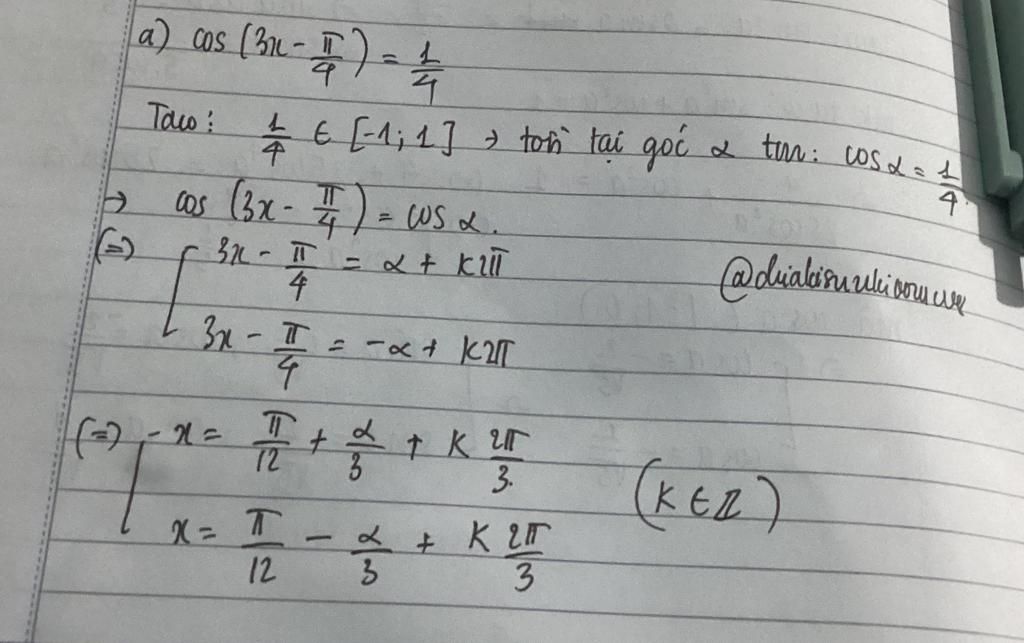 a) cos (3x - π/4) = 1/4
Ta có: 1/4 ∈ [-1; 1] → tồn tại góc α tm: cos α = 1/4.
→ cos (3x - π/4) = cos α.
(=) [ 3x - π/4 = α + k2π
3x - π/4 = -α + k2π
(=) [ x = π/12 + α/3 + k 2π/3.
(k ∈ Z)
x = π/12 - α/3 + k 2π/3